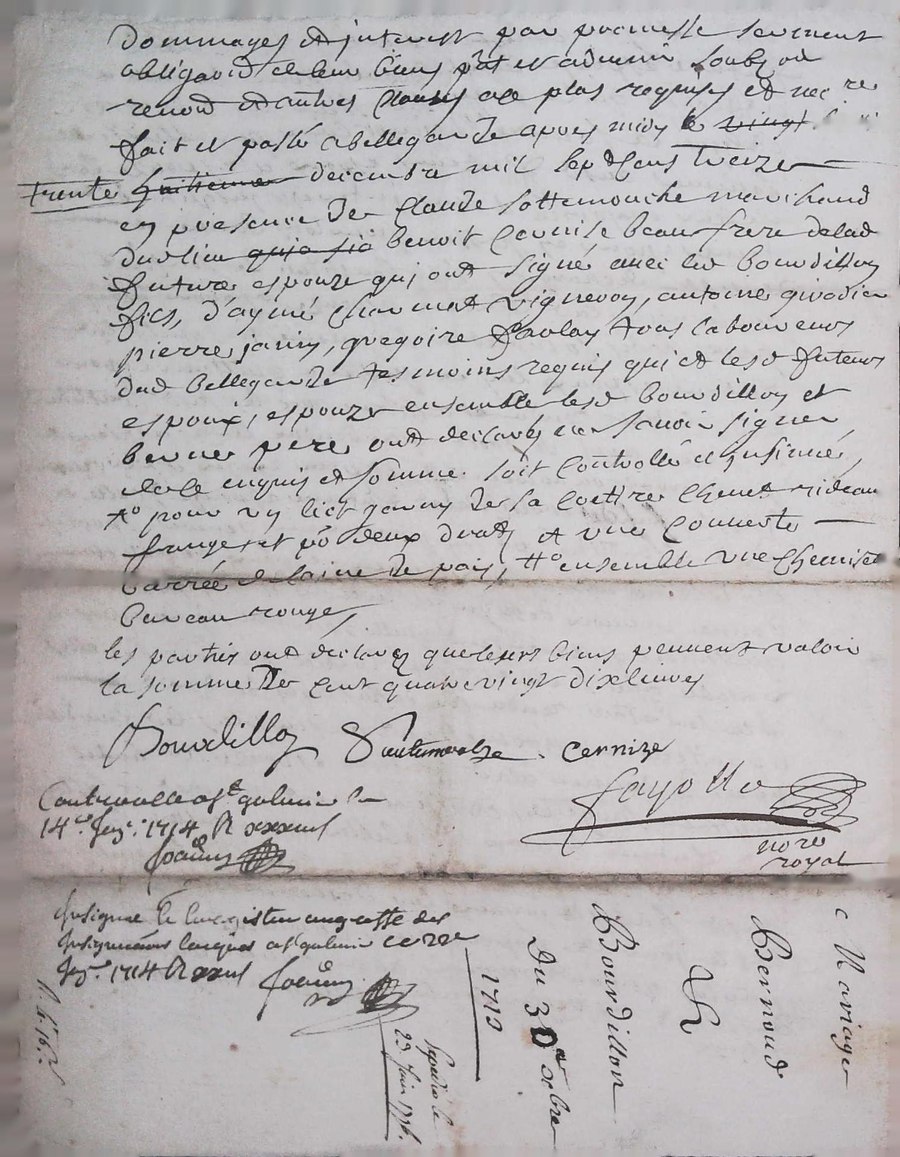 dommages et interest par promesse serment
obligaon de leur biens pnt et advenir soubz
renond et autres clauses a ce plus requises et necre
fait et passé a bellegarde apres midy le vingt
trente huitieme decembre mil sept cens treize
en presence de Claude sottemouche marchand
dud lieu benoit Cernise beau frere de lad
future espouze qui ont signé avec led bourdillon
fils, d'aymé Charmet vigneron, antoine givodier
pierre janin, gregoire favlon tous laboureurs
dud bellegarde tesmoins requis qui et lesd futeurs
espoux, espouze ensemble lesd bourdillon et
pere ont declarés ne scavoir signer
de ce enquis et somme. soit controllé et insinué,
pour un lict garny de sa coetire chevet rideau
franges et po deux drads et une couverte
barrée de laine de pais, ensemble une
bureau rouge,
les parties ont declarez que leurs biens peuvent valoir
la somme de cent quatre vingt dix livres
Bourdillon Santemouche cernize
fayolle
nore
royal
Controolle a st galmier le
14e Janv. 1714 R
Insinué et enregistré au greffe des
insignuaons laiques a st galmier ce
Janv. 1714 R
Mariage
Bernoud
&
Bourdillon
Du 30e xbre
1713
Expedié le
23 Juin 1776.